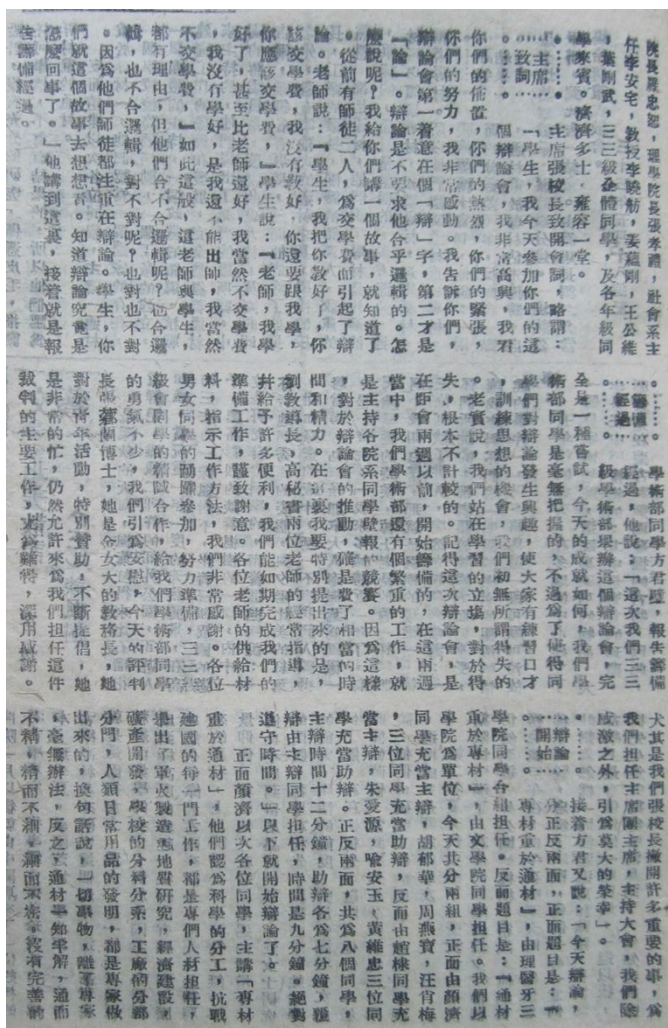 院長羅忠恕，理學院長張孝禮，社會系主
任李安宅，教授李曉舫，姜蘊剛，王公維
，葉剛武，三三級全體同學，及各年級同
學來賓。濟濟多士，雍容一堂。
主席
致詞
主席張校長致開會詞，略謂：
「學生，我今天參加你們的這
個辯論會，我非常高興，我看
你們的佈置，你們的熱烈，你們的緊張，
你們的努力，我非常感動。我告訴你們，
辯論會第一着意在個「辯」字，第二才是
「論」。辯論是不要求他合乎邏輯的。怎
麼說呢？我給你們講一個故事，就知道了
。從前有師徒二人，爲交學費而引起了辯
論。老師說：『學生，我把你教好了，你
該交學費，我沒有教好，你還要跟我學，
你應該交學費，』學生說：『老師，我學
好了，甚至比老師還好，我當然不交學費
，我沒有學好，是我還不能出師，我當然
不交學費，』如此這般，這老師與學生，
都有理由，但他們合不合邏輯呢？也合邏
輯，也不合邏輯，對不對呢？也對也不對
。因爲他們師徒都注重在辯論。學生，你
們就這個故事去想想看。知道辯論究竟是
怎麼回事了。」他講到這裏，接着就是報
告籌備經過。
籌備
經過
學術部同學方君璧，報告籌備
經過，他說：「這次我們三三
級學術部舉辦這個辯論會，完
全是一種嘗試，今天的成就如何，我們學
術部同學是毫無把握的，不過爲了使得同
學們對辯論發生興趣，使大家有練習口才
，訓練思想的機會，我們初無所謂得失的
。老實說，我們站在學習的立場，對於得
失，根本不計較的。記得這次辯論會，是
在距會兩週以前，開始籌備的，在這兩週
當中，我們學術部還有個繁重的工作，就
是主持各院系同學壁報的競賽。因爲這樣
，對於辯論會的推動，確是費了相當的時
間和精力。在這裏我要特別提出來的是，
劉教導長，高秘書兩位老師的經常指導，
幷給予許多便利，我們能如期完成我們的
準備工作，謹致謝意。各位老師的供給材
料，指示工作方法，我們非常感謝。各位
男女同學的踴躍參加，努力準備，三三
級會同學的精誠合作，給我們學術部同學
的勇氣不少，我們引爲安慰，今天的評判
長張蘭博士，她是金女大的教務長，她
對於青年活動，特別贊助，不斷提倡，她
是非常的忙，仍然允許來爲我們担任這件
裁判的主要工作，尤爲難得，深用感謝。
尤其是我們張校長撇開許多重要的事，爲
我們担任主席團主席，主持大會，我們除
感激之外，引爲莫大的榮幸」。
辯論
開始
接着方君又說：「今天辯論，
分正反兩面，正面題目是：「
專材重於通材」，由理醫牙三
學院同學合組担任。反面題目是：「通材
重於專材」，由文學院同學担任。我們以
學院爲單位，今天共分兩組，正面由顏濟
同學充當主辯，胡郁華，周燕寶，汪肖梅
，三位同學充當助辯，反面由趙棣同學充
當主辯，朱愛源，喻安玉、黃維忠三位同
學充當助辯。正反兩面，共爲八個同學，
主辯時間十二分鐘，助辯各爲七分鐘，覆
辯由主辯同學担任，時間是九分鐘。絕對
遵守時間。」以下就開始辯論了。
正面顏濟以次各位同學，主講「專材
重於通材」，他們認爲科學的分工，抗戰
建國的每一門工作，都是專門人材担任，
舉出了軍火製造與地質研究，經濟建設，
礦產開發，學校的分科分系，工廠的分部
分門，人類日常用品的發明，都是專家做
出來的，換句話說，一切事物，離了專家
，毫無辦法，反之，通材一知半解，通而
不精，精而不